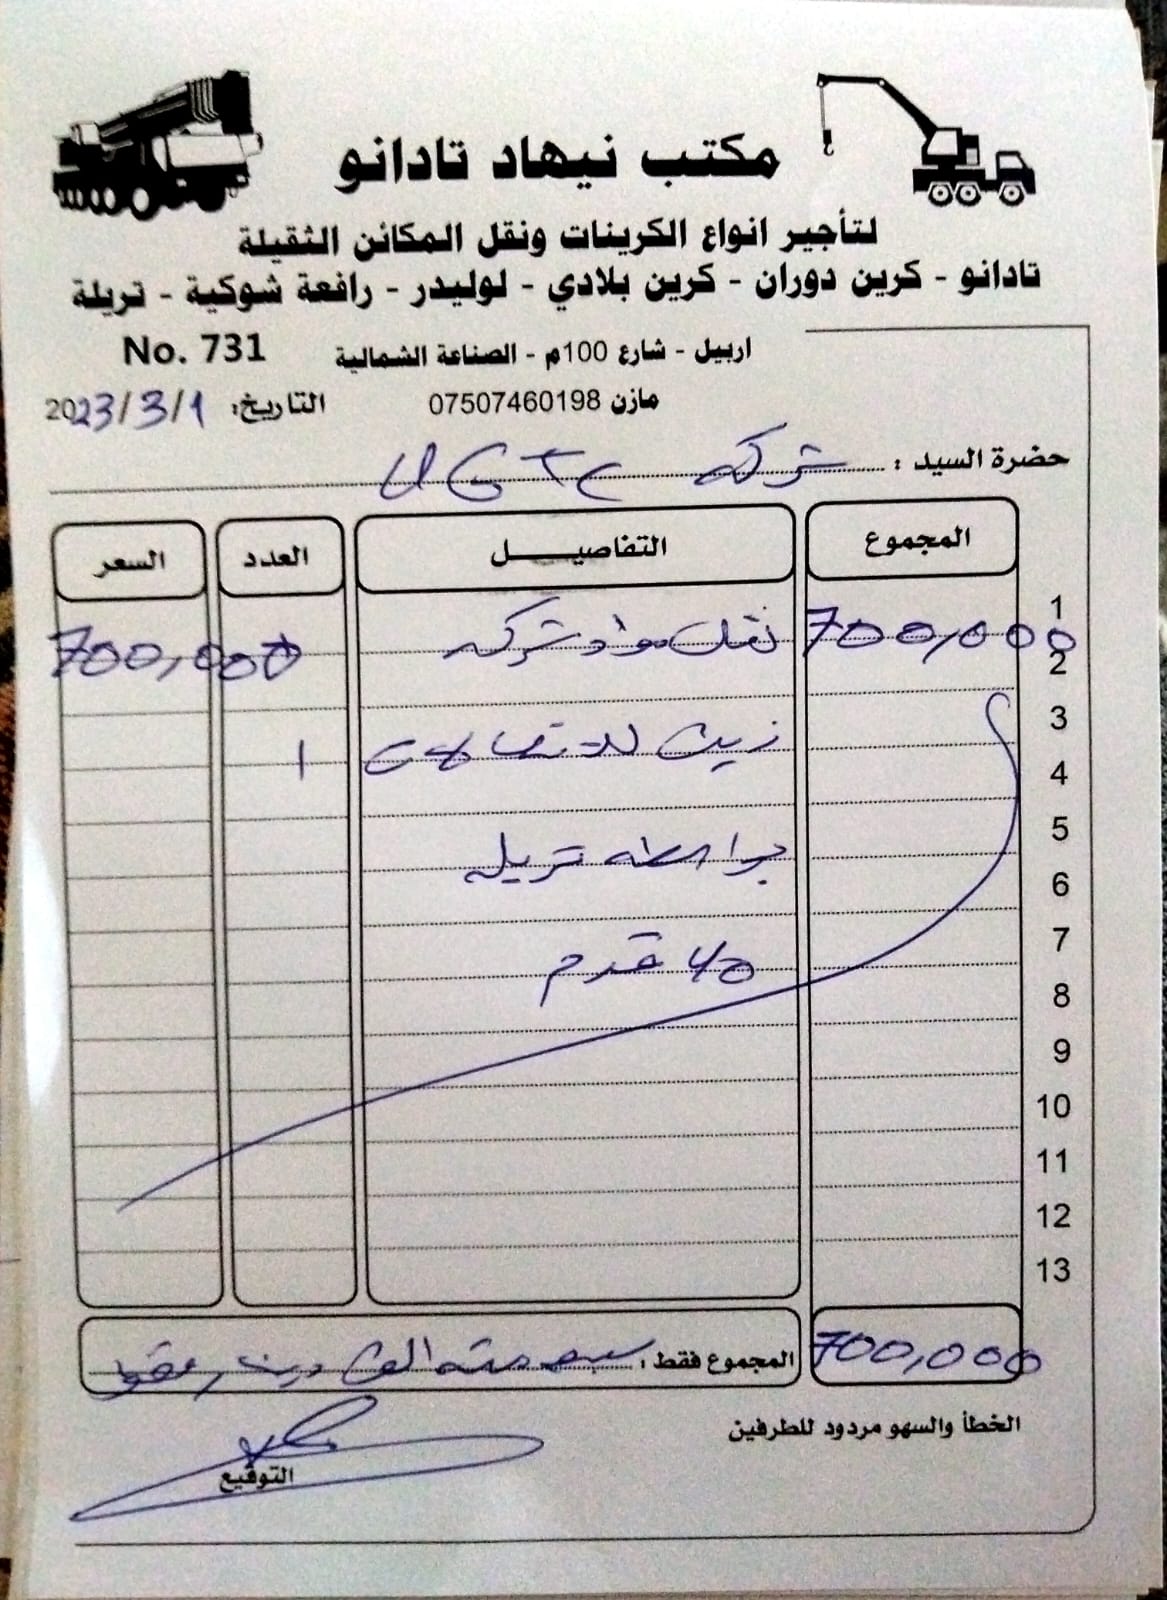 مكتب نيهاد تادانو
لتأجير انواع الكرينات ونقل المكائن الثقيلة
تادانو - كرين دوران - كرين بلادي - لوليدر - رافعة شوكية - تريلة
اربيل - شارع 100م - الصناعة الشمالية No. 731
مازن 07507460198 التاريخ: 2023/3/1
حضرة السيد : شركة UGTC
المجموع التفاصيــــل العدد السعر
1
700,000 نقل مواد شركة 700,000
2
3
زين للاتصالات 1
4
5
بواسطة تريلة
6
7
40 قدم
8
9
10
11
12
13
700,000 المجموع فقط : سبعمئة الف دينار فقط
الخطأ والسهو مردود للطرفين
التوقيع